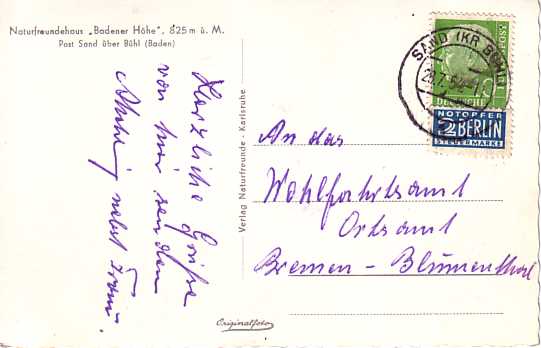 Naturfreundehaus „Badener Höhe", 825 m ü. M.
Post Sand über Bühl (Baden)
Herzliche Grüße
von hier senden
nebst Frau.
Verlag Naturfreunde - Karlsruhe
Originalfoto
SAND (KR. BÜHL)
DEUTSCHE
POST
NOTOPFER
2 BERLIN
STEUERMARKE
An das
Wohlfahrtsamt
Ortsamt
Bremen - Blumenthal